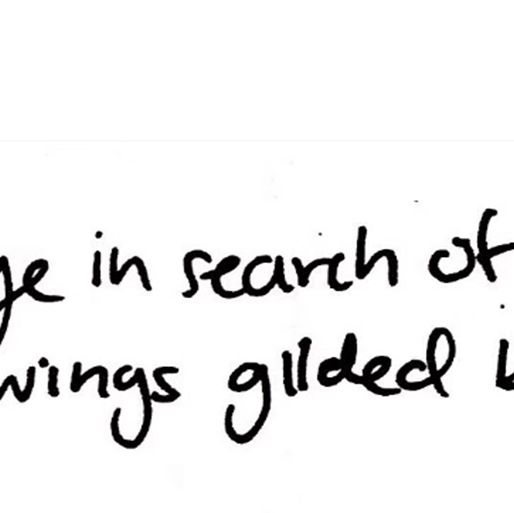 ge in search of
wings gilded b